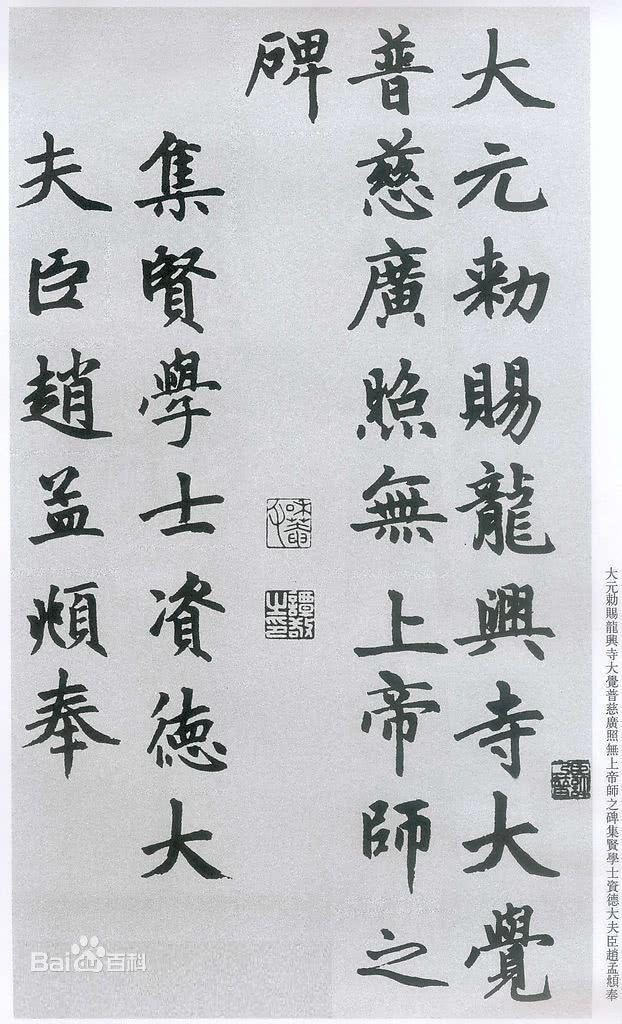 大元勅賜龍興寺大覺
普慈廣照無上帝師之
碑
集賢學士資德大
夫臣趙孟頫奉
大元勅賜龍興寺大覺普慈廣照無上帝師之碑集賢學士資德大夫臣趙孟頫奉
Bai百科